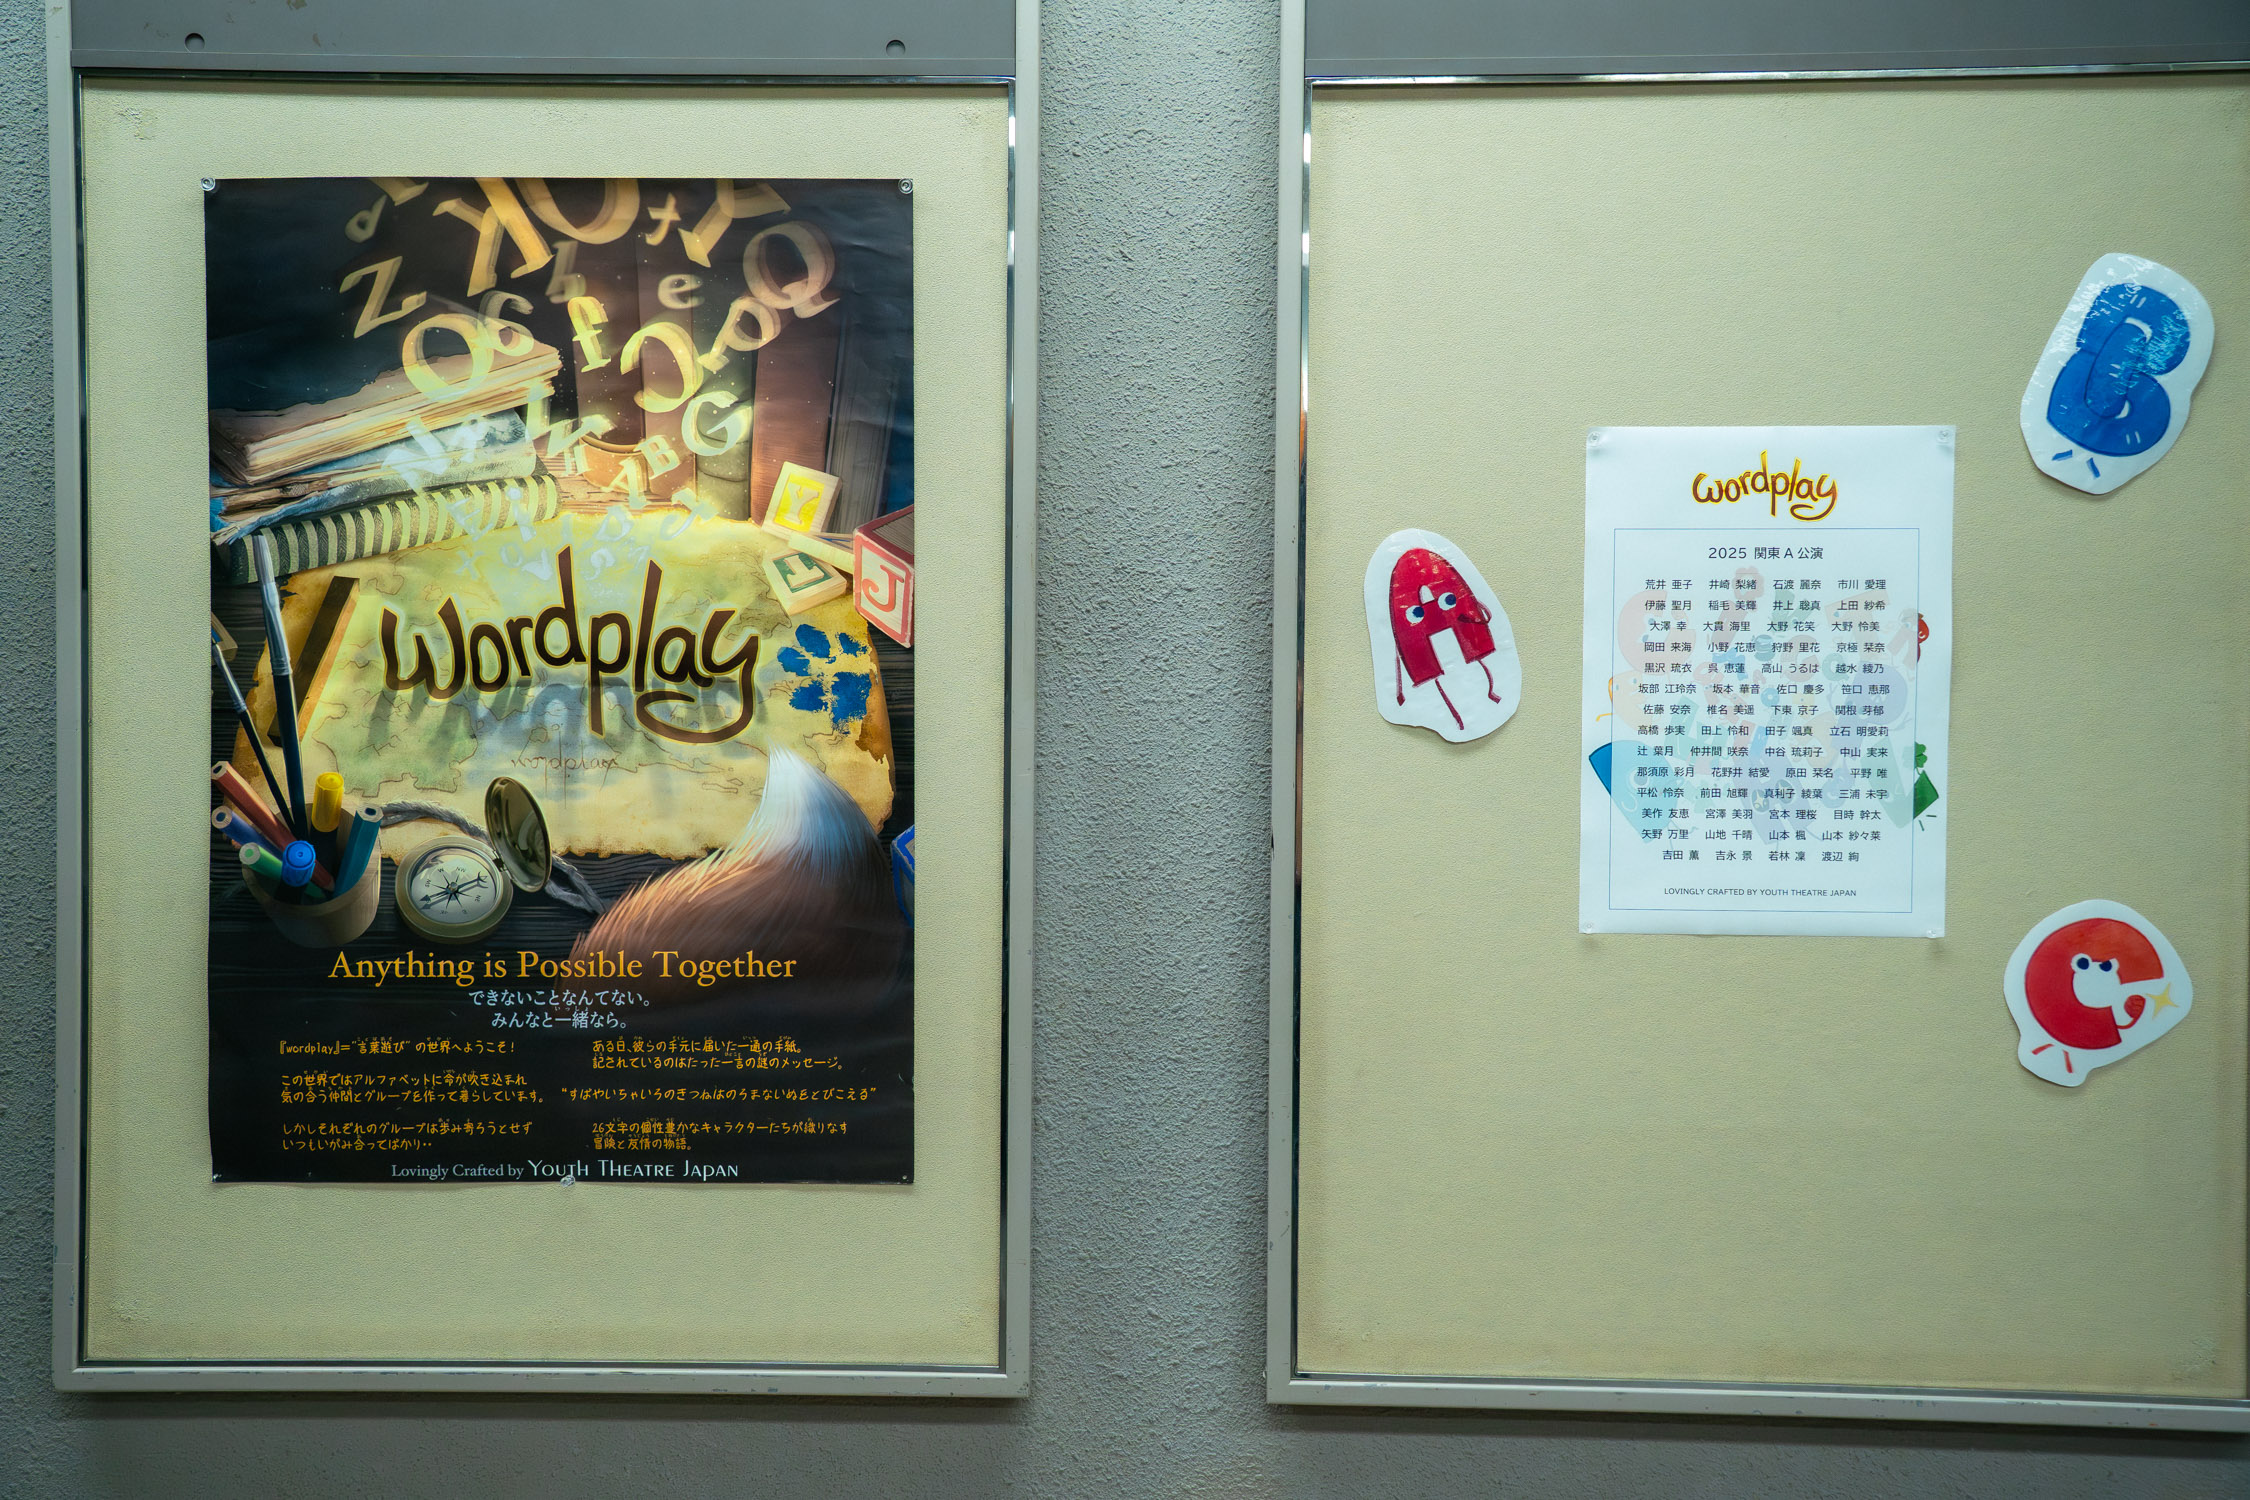 wordplay
Anything is Possible Together
できないことなんてない。
みんなと一緒なら。
『wordplay』="言葉遊び" の世界へようこそ!
この世界ではアルファベットに命が吹き込まれ
気の合う仲間とグループを作って暮らしています。
しかしそれぞれのグループは歩み寄ろうとせず
いつもいがみ合ってばかり・・
ある日、彼らの手元に届いた一通の手紙。
記されているのはたった一言の謎のメッセージ。
“すばやいちゃいろのきつねはのろまないぬをとびこえる”
26文字の個性豊かなキャラクターたちが織りなす
冒険と友情の物語。
Lovingly Crafted by YOUTH THEATRE JAPAN
wordplay
2025 関東 A 公演
荒井 亜子 井崎 梨緒 石渡 麗奈 市川 愛理
伊藤 聖月 稲毛 美輝 井上 聡真 上田 紗希
大澤 幸 大貫 海里 大野 花笑 大野 怜美
岡田 来海 小野 花恵 狩野 里花 京極 栞奈
黒沢 琉衣 呉 恵蓮 高山 うるは 越水 綾乃
坂部 江玲奈 坂本 華音 佐口 慶多 笹口 恵那
佐藤 安奈 椎名 美遥 下東 京子 関根 芽郁
高橋 歩実 田上 怜和 田子 颯真 立石 明愛莉
辻 葉月 仲井間 咲奈 中谷 琉莉子 中山 実来
那須原 彩月 花野井 結愛 原田 栞名 平野 唯
平松 怜奈 前田 旭輝 真利子 綾葉 三浦 未宇
美作 友恵 宮澤 美羽 宮本 理桜 目時 幹太
矢野 万里 山地 千晴 山本 楓 山本 紗々菜
吉田 薫 吉永 景 若林 凜 渡辺 絢
LOVINGLY CRAFTED BY YOUTH THEATRE JAPAN